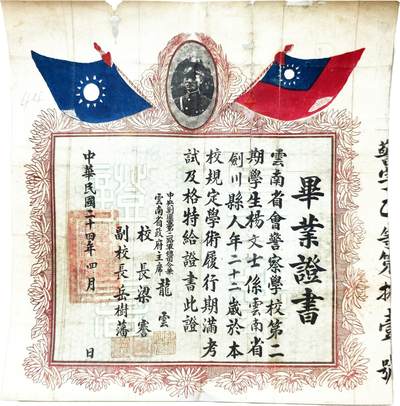 警字乙等第拾壹號
畢業證書
雲南省會警察學校第二
期學生楊文士係雲南省
劍川縣人年二十二歲於本
校規定學術履行期滿考
試及格特給證書此證
雲南省政府主席 龍雲
校長梁
副校長岳樹藩
中華民國二十四年四月 日